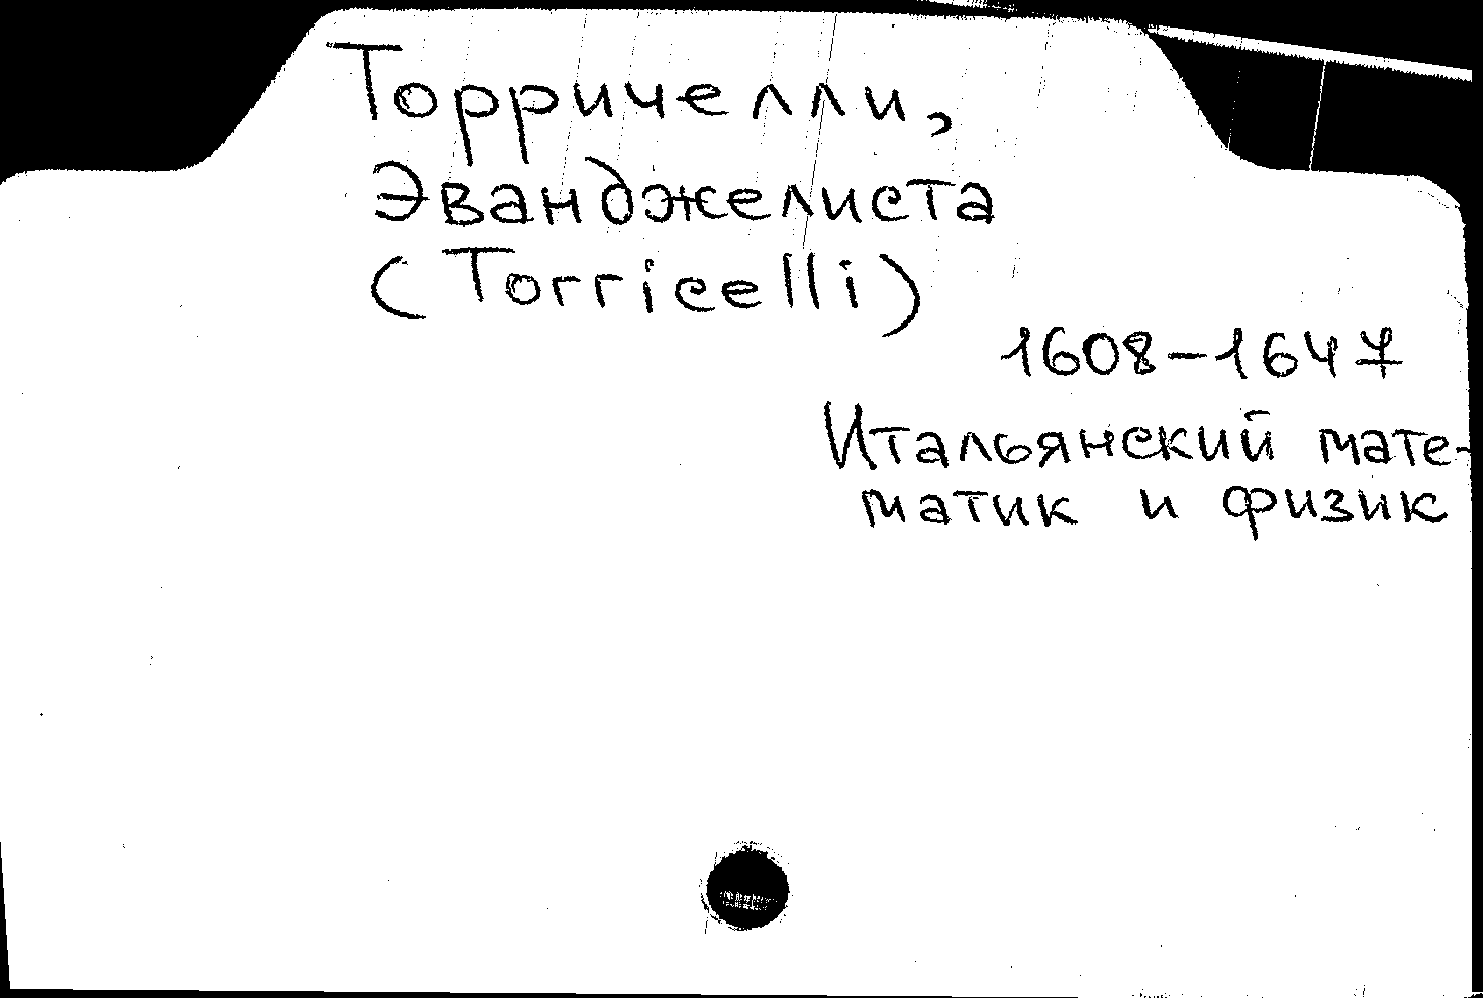 Торричелли,
Эванджелиста
(Torricelli)
1608-1647
Итальянский мате-
матик и физик